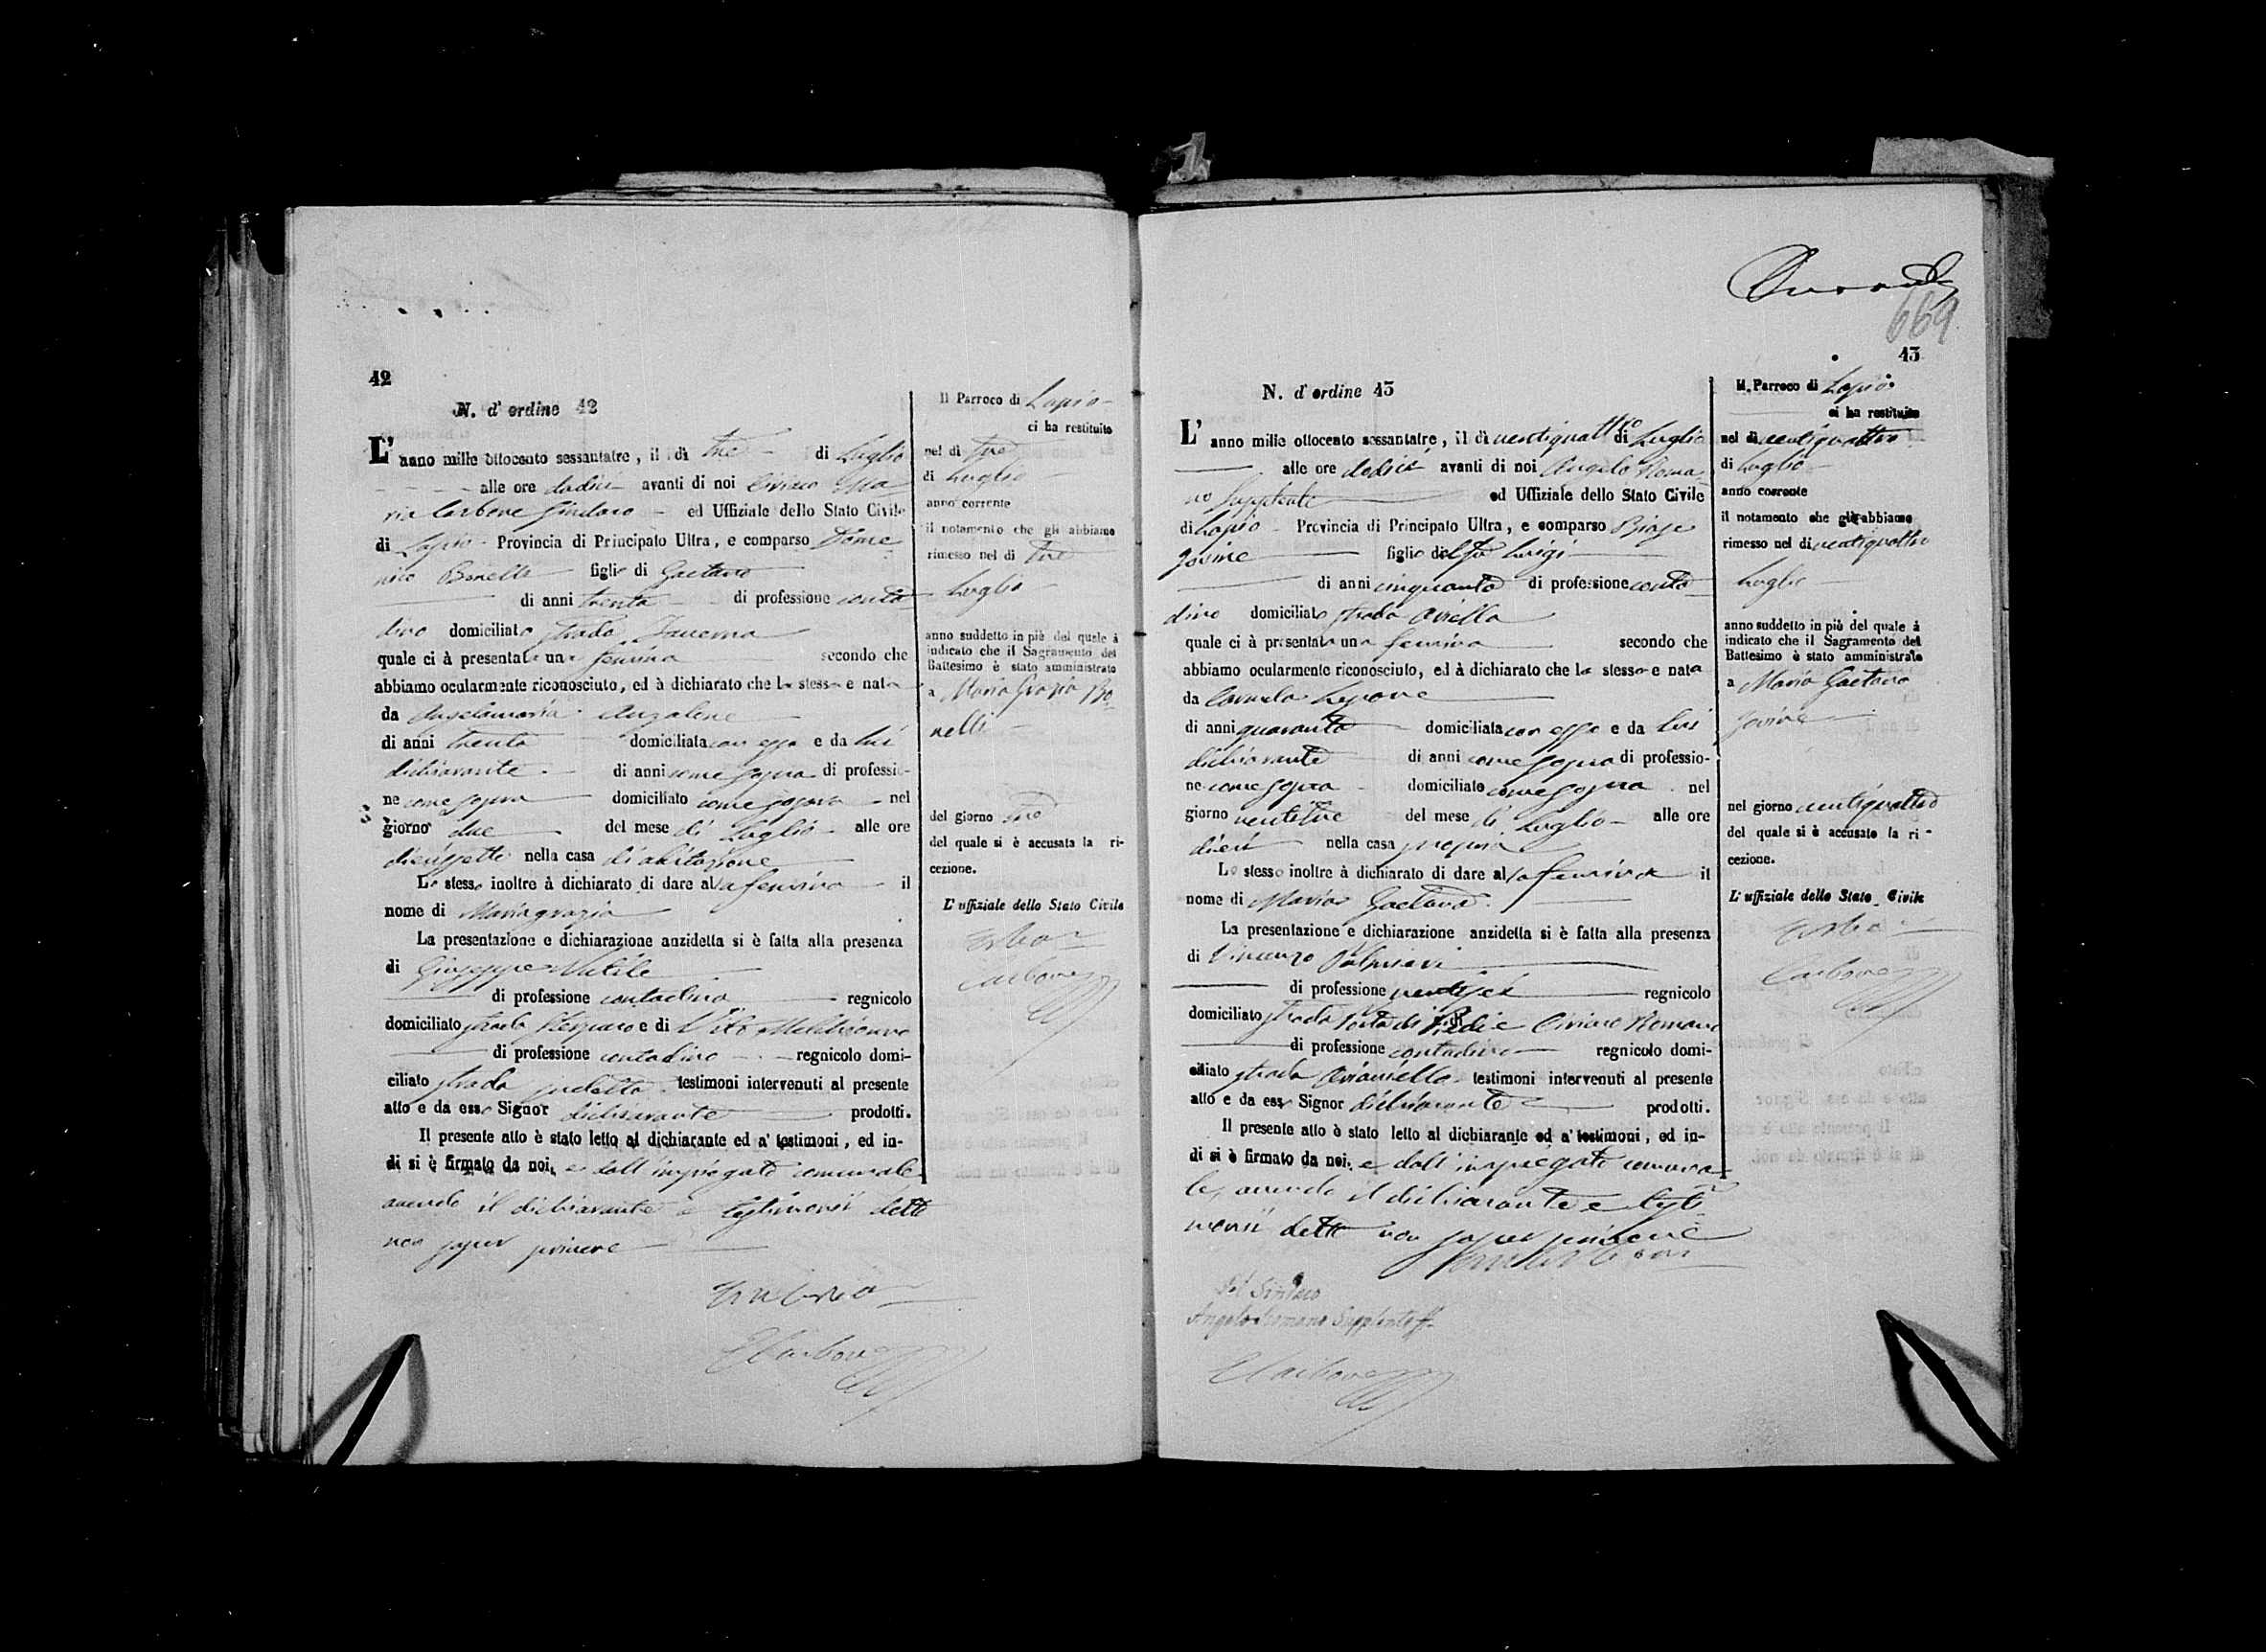 42
N. d'ordine 42
L'anno mille ottocento sessantatre, il dì tre di Luglio
alle ore dodici avanti di noi Ciriaco Ma
ria Carbone Sindaco ed Uffiziale dello Stato Civile
di Lapio Provincia di Principato Ultra, e comparso Dome
nico Bonelli figlio di Gaetano
di anni trenta di professione conta
dino domiciliato strada Taverna
quale ci à presentata una femina secondo che
abbiamo ocularmente riconosciuto, ed à dichiarato che la stessa e nata
da Angelamaria Anzalone
di anni trenta domiciliata con esso e da lui
dichiarante di anni come sopra di professio-
ne come sopra domiciliato come sopra nel
giorno due del mese di Luglio alle ore
diecissette nella casa di abitazione
Lo stesso inoltre à dichiarato di dare alla femina il
nome di Mariagrazia
La presentazione e dichiarazione anzidetta si è fatta alla presenza
di Giuseppe
di professione contadino regnicolo
domiciliato strada e di Vito
di professione contadino regnicolo domi-
ciliato strada testimoni intervenuti al presente
atto e da esso Signor dichiarante prodotti.
Il presente atto è stato letto al dichiarante ed a' testimoni, ed in-
di si è firmato da noi, e dall'impiegato comunale
avendo il dichiarante e testimonii detto
non saper scrivere
CCarbone
Il Parroco di Lapio
ci ha restituito
nel dì tre
di Luglio
anno corrente
il notamento che gli abbiamo
rimesso nel dì tre
Luglio
anno suddetto in piè del quale à
indicato che il Sagramento del
Battesimo è stato amministrato
a Maria Grazia Bo
nelli
del giorno tre
del quale si è accusata la ri-
cezione.
L'uffiziale dello Stato Civile
Carbone
669
43
N. d'ordine 43
L'anno mille ottocento sessantatre, il dì ventiquattro di Luglio
alle ore dodici avanti di noi Angelo Roma
no Supplente ed Uffiziale dello Stato Civile
di Lapio Provincia di Principato Ultra, e comparso Biage
Iovine figlio di Luigi
di anni cinquanta di professione conta
dino domiciliato strada
quale ci à presentata una femina secondo che
abbiamo ocularmente riconosciuto, ed à dichiarato che la stessa e nata
da Carmela Lepore
di anni quaranta domiciliata con esso e da lui
dichiarante di anni come sopra di professio-
ne come sopra domiciliato come sopra nel
giorno ventitre del mese di Luglio alle ore
dieci nella casa propria
Lo stesso inoltre à dichiarato di dare alla femina il
nome di Maria Gaetana
La presentazione e dichiarazione anzidetta si è fatta alla presenza
di Vincenzo
di professione regnicolo
domiciliato strada e Ciriaco Romano
di professione contadino regnicolo domi-
ciliato strada testimoni intervenuti al presente
atto e da esso Signor dichiarante prodotti.
Il presente atto è stato letto al dichiarante ed a' testimoni, ed in-
di si è firmato da noi, e dall'impiegato comuna
le, avendo il dichiarante e testi
monii detto non saper scrivere
Pel Sindaco
Angelo Romano Supplente
CCarbone
Il Parroco di Lapio
ci ha restituito
nel dì ventiquattro
di Luglio
anno corrente
il notamento che gli abbiamo
rimesso nel dì ventiquattro
Luglio
anno suddetto in piè del quale à
indicato che il Sagramento del
Battesimo è stato amministrato
a Maria Gaetana
Iovine
nel giorno ventiquattro
del quale si è accusato la ri-
cezione.
L'uffiziale dello Stato Civile
Carbone